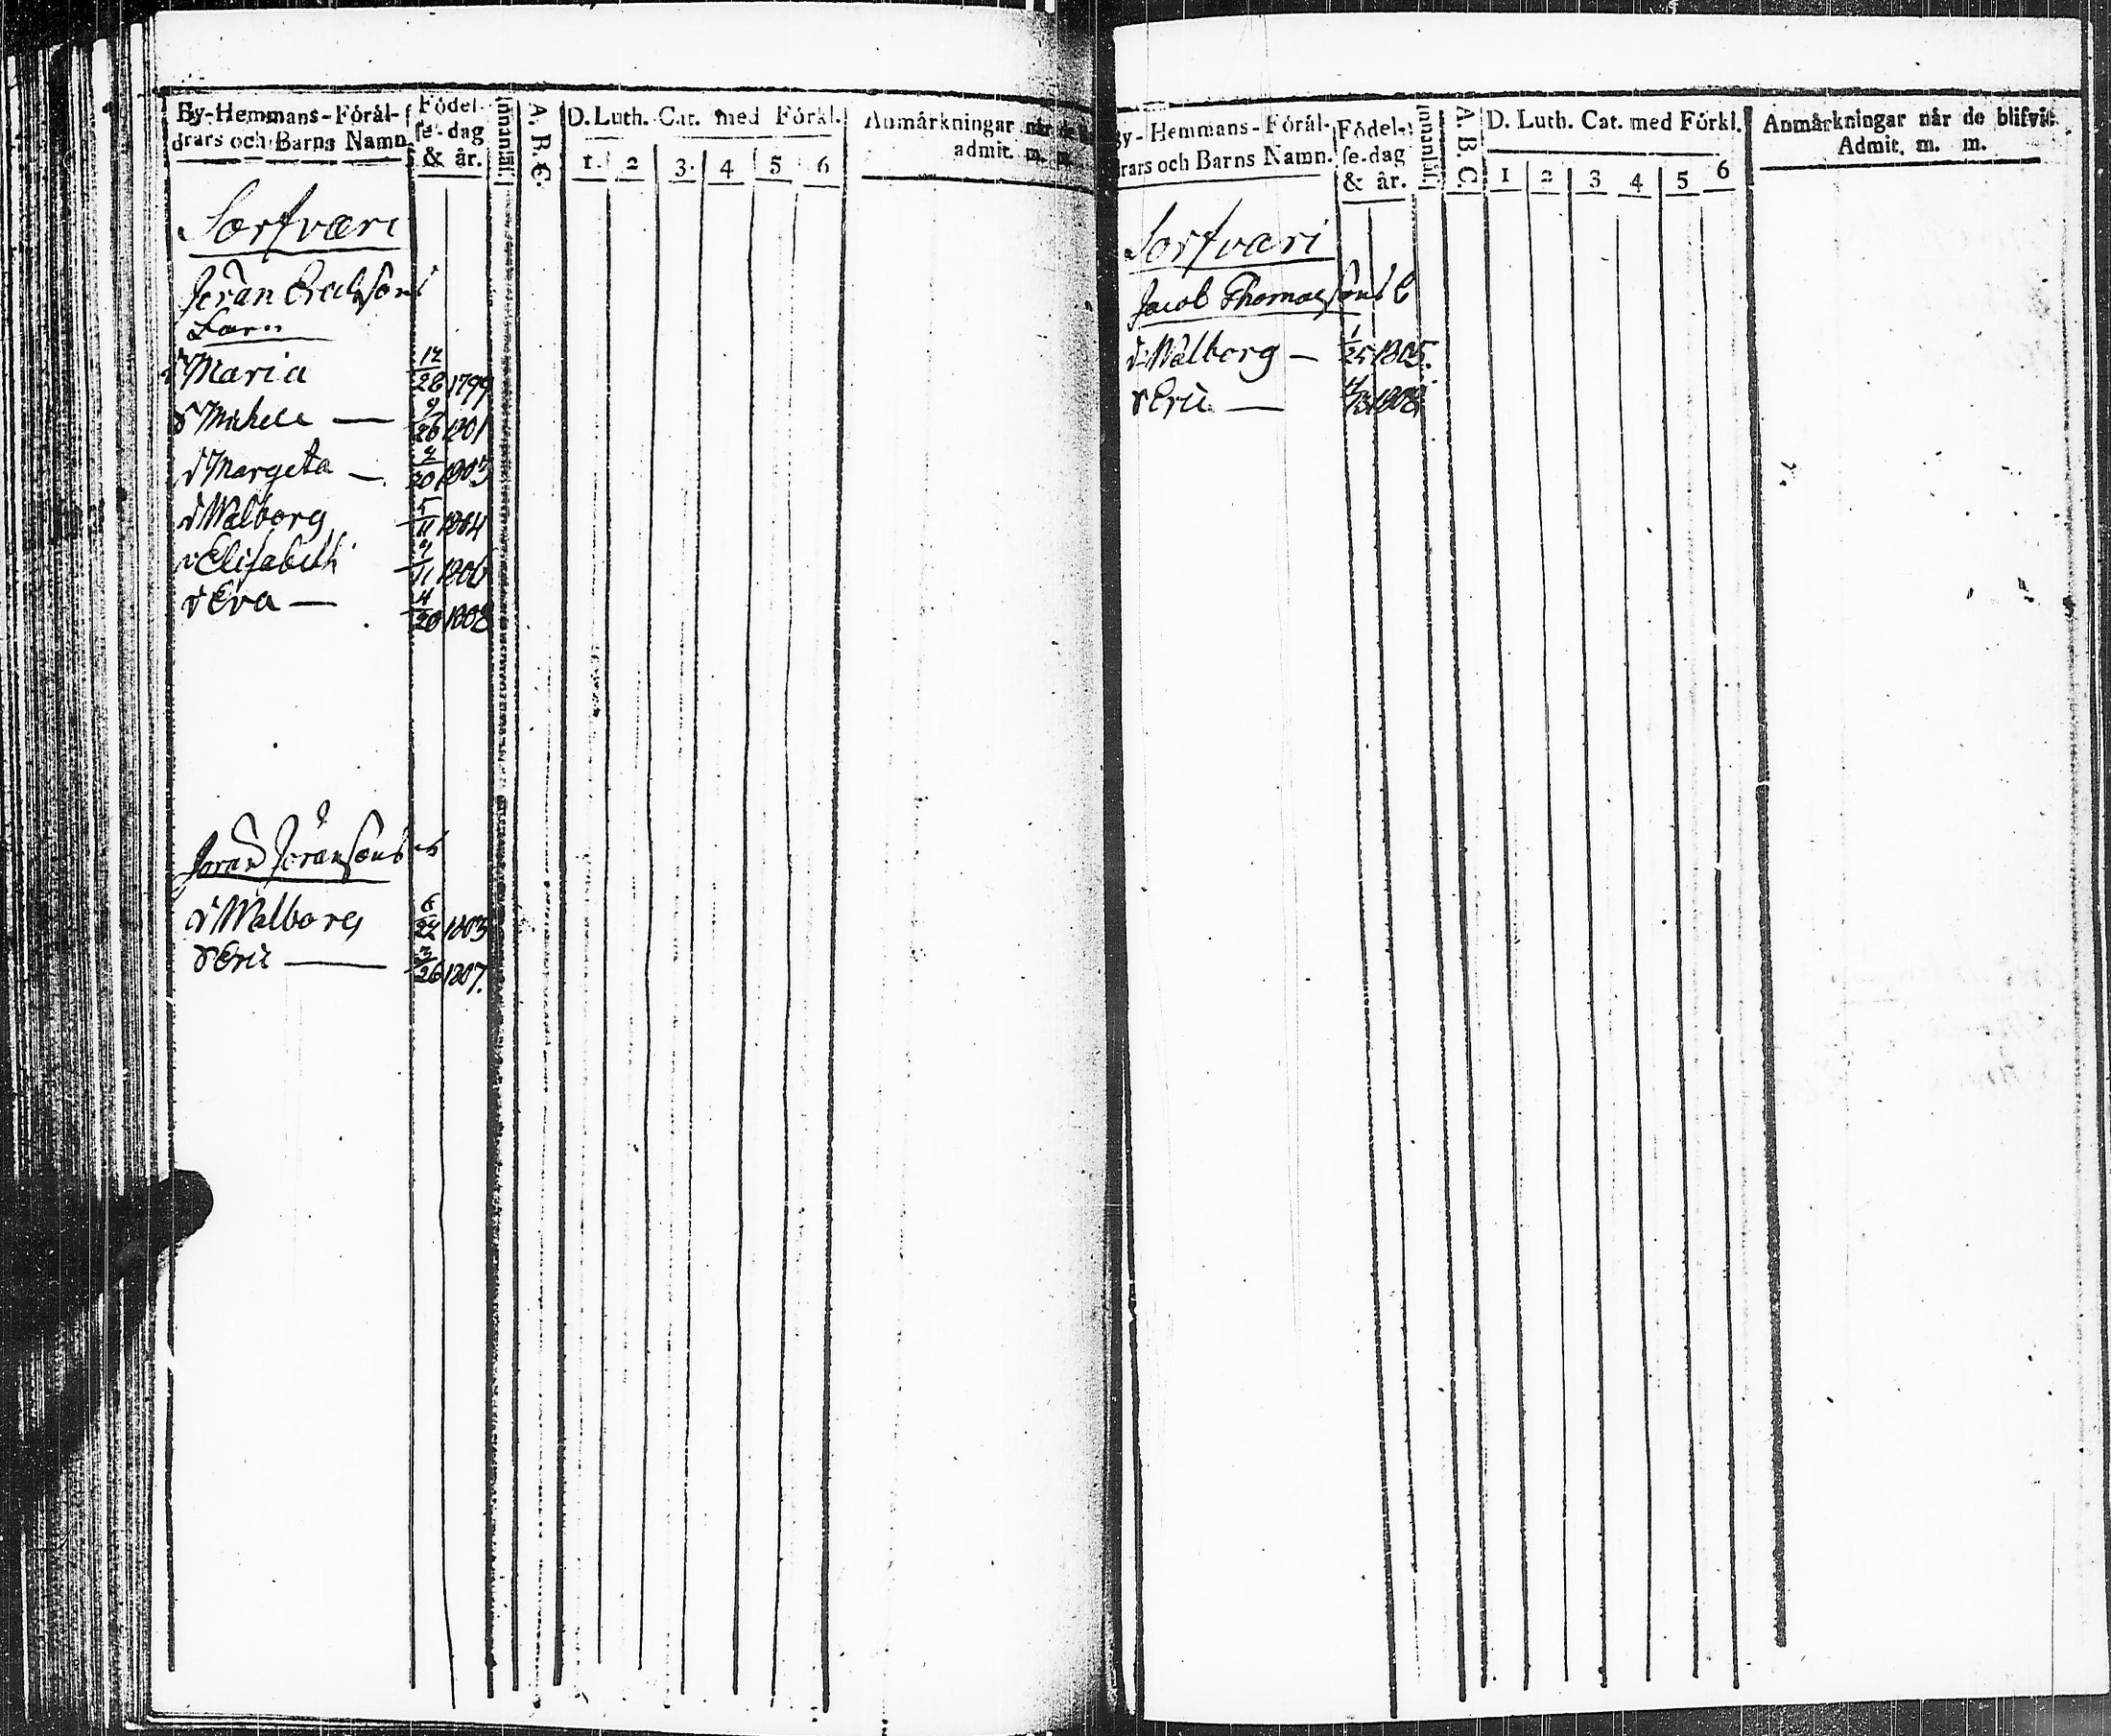 By-Hemmans-Föräl-
drars och Barns Namn.
Födel-
se-dag
& år.
Innanläs.
A. B. C.
D. Luth. Cat. med Förkl.
1. 2 3. 4 5 6
Anmärkningar när de
admit. m. m.
Sorfværi
Jöran Ericksons
Barn
d Maria 12/28 1799
S Michell — 9/26 1801
d Margeta — 2/20 1803
d Walborg 5/11 1804
d Elisabeth 11 1806
d Eva — 4/20 1808
Jöran Jöransons b
d Walborg 6/24 1803
S Eric — 3/26 1807.
By-Hemmans-Föräl-
drars och Barns Namn.
Födel-
se-dag
& år.
Innanläs.
A. B. C.
D. Luth. Cat. med Förkl.
1 2 3 4 5 6
Anmärkningar när de blifvit
Admit. m. m.
Sorfværi
Jacob Thomassons b
d Walborg — 1/25 1805.
S Eric — 1808